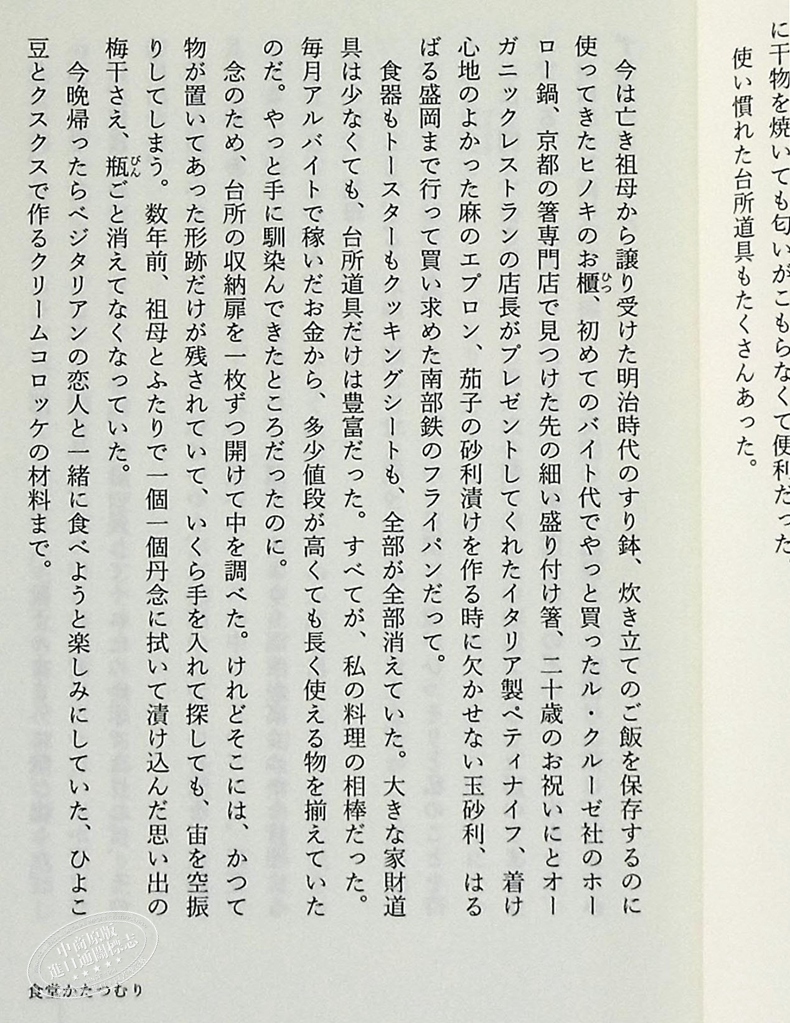 に干物を焼いても匂いがこもらなくて便利だった。
使い慣れた台所道具もたくさんあった。
今は亡き祖母から譲り受けた明治時代のすり鉢、炊き立てのご飯を保存するのに
使ってきたヒノキのお櫃、初めてのバイト代でやっと買ったル・クルーゼ社のホー
ロー鍋、京都の箸専門店で見つけた先の細い盛り付け箸、二十歳のお祝いにとオー
ガニックレストランの店長がプレゼントしてくれたイタリア製ペティナイフ、着け
心地のよかった麻のエプロン、茄子の砂利漬けを作る時に欠かせない玉砂利、はる
ばる盛岡まで行って買い求めた南部鉄のフライパンだって。
食器もトースターもクッキングシートも、全部が全部消えていた。大きな家財道
具は少なくても、台所道具だけは豊富だった。すべてが、私の料理の相棒だった。
毎月アルバイトで稼いだお金から、多少値段が高くても長く使える物を揃えていた
のだ。やっと手に馴染んできたところだったのに。
念のため、台所の収納扉を一枚ずつ開けて中を調べた。けれどそこには、かつて
物が置いてあった形跡だけが残されていて、いくら手を入れて探しても、宙を空振
りしてしまう。数年前、祖母とふたりで一個一個丹念に拭いて漬け込んだ思い出の
梅干さえ、瓶ごと消えてなくなっていた。
今晩帰ったらベジタリアンの恋人と一緒に食べようと楽しみにしていた、ひよこ
豆とクスクスで作るクリームコロッケの材料まで。
食堂かたつむり
中商原版
進口通關標志